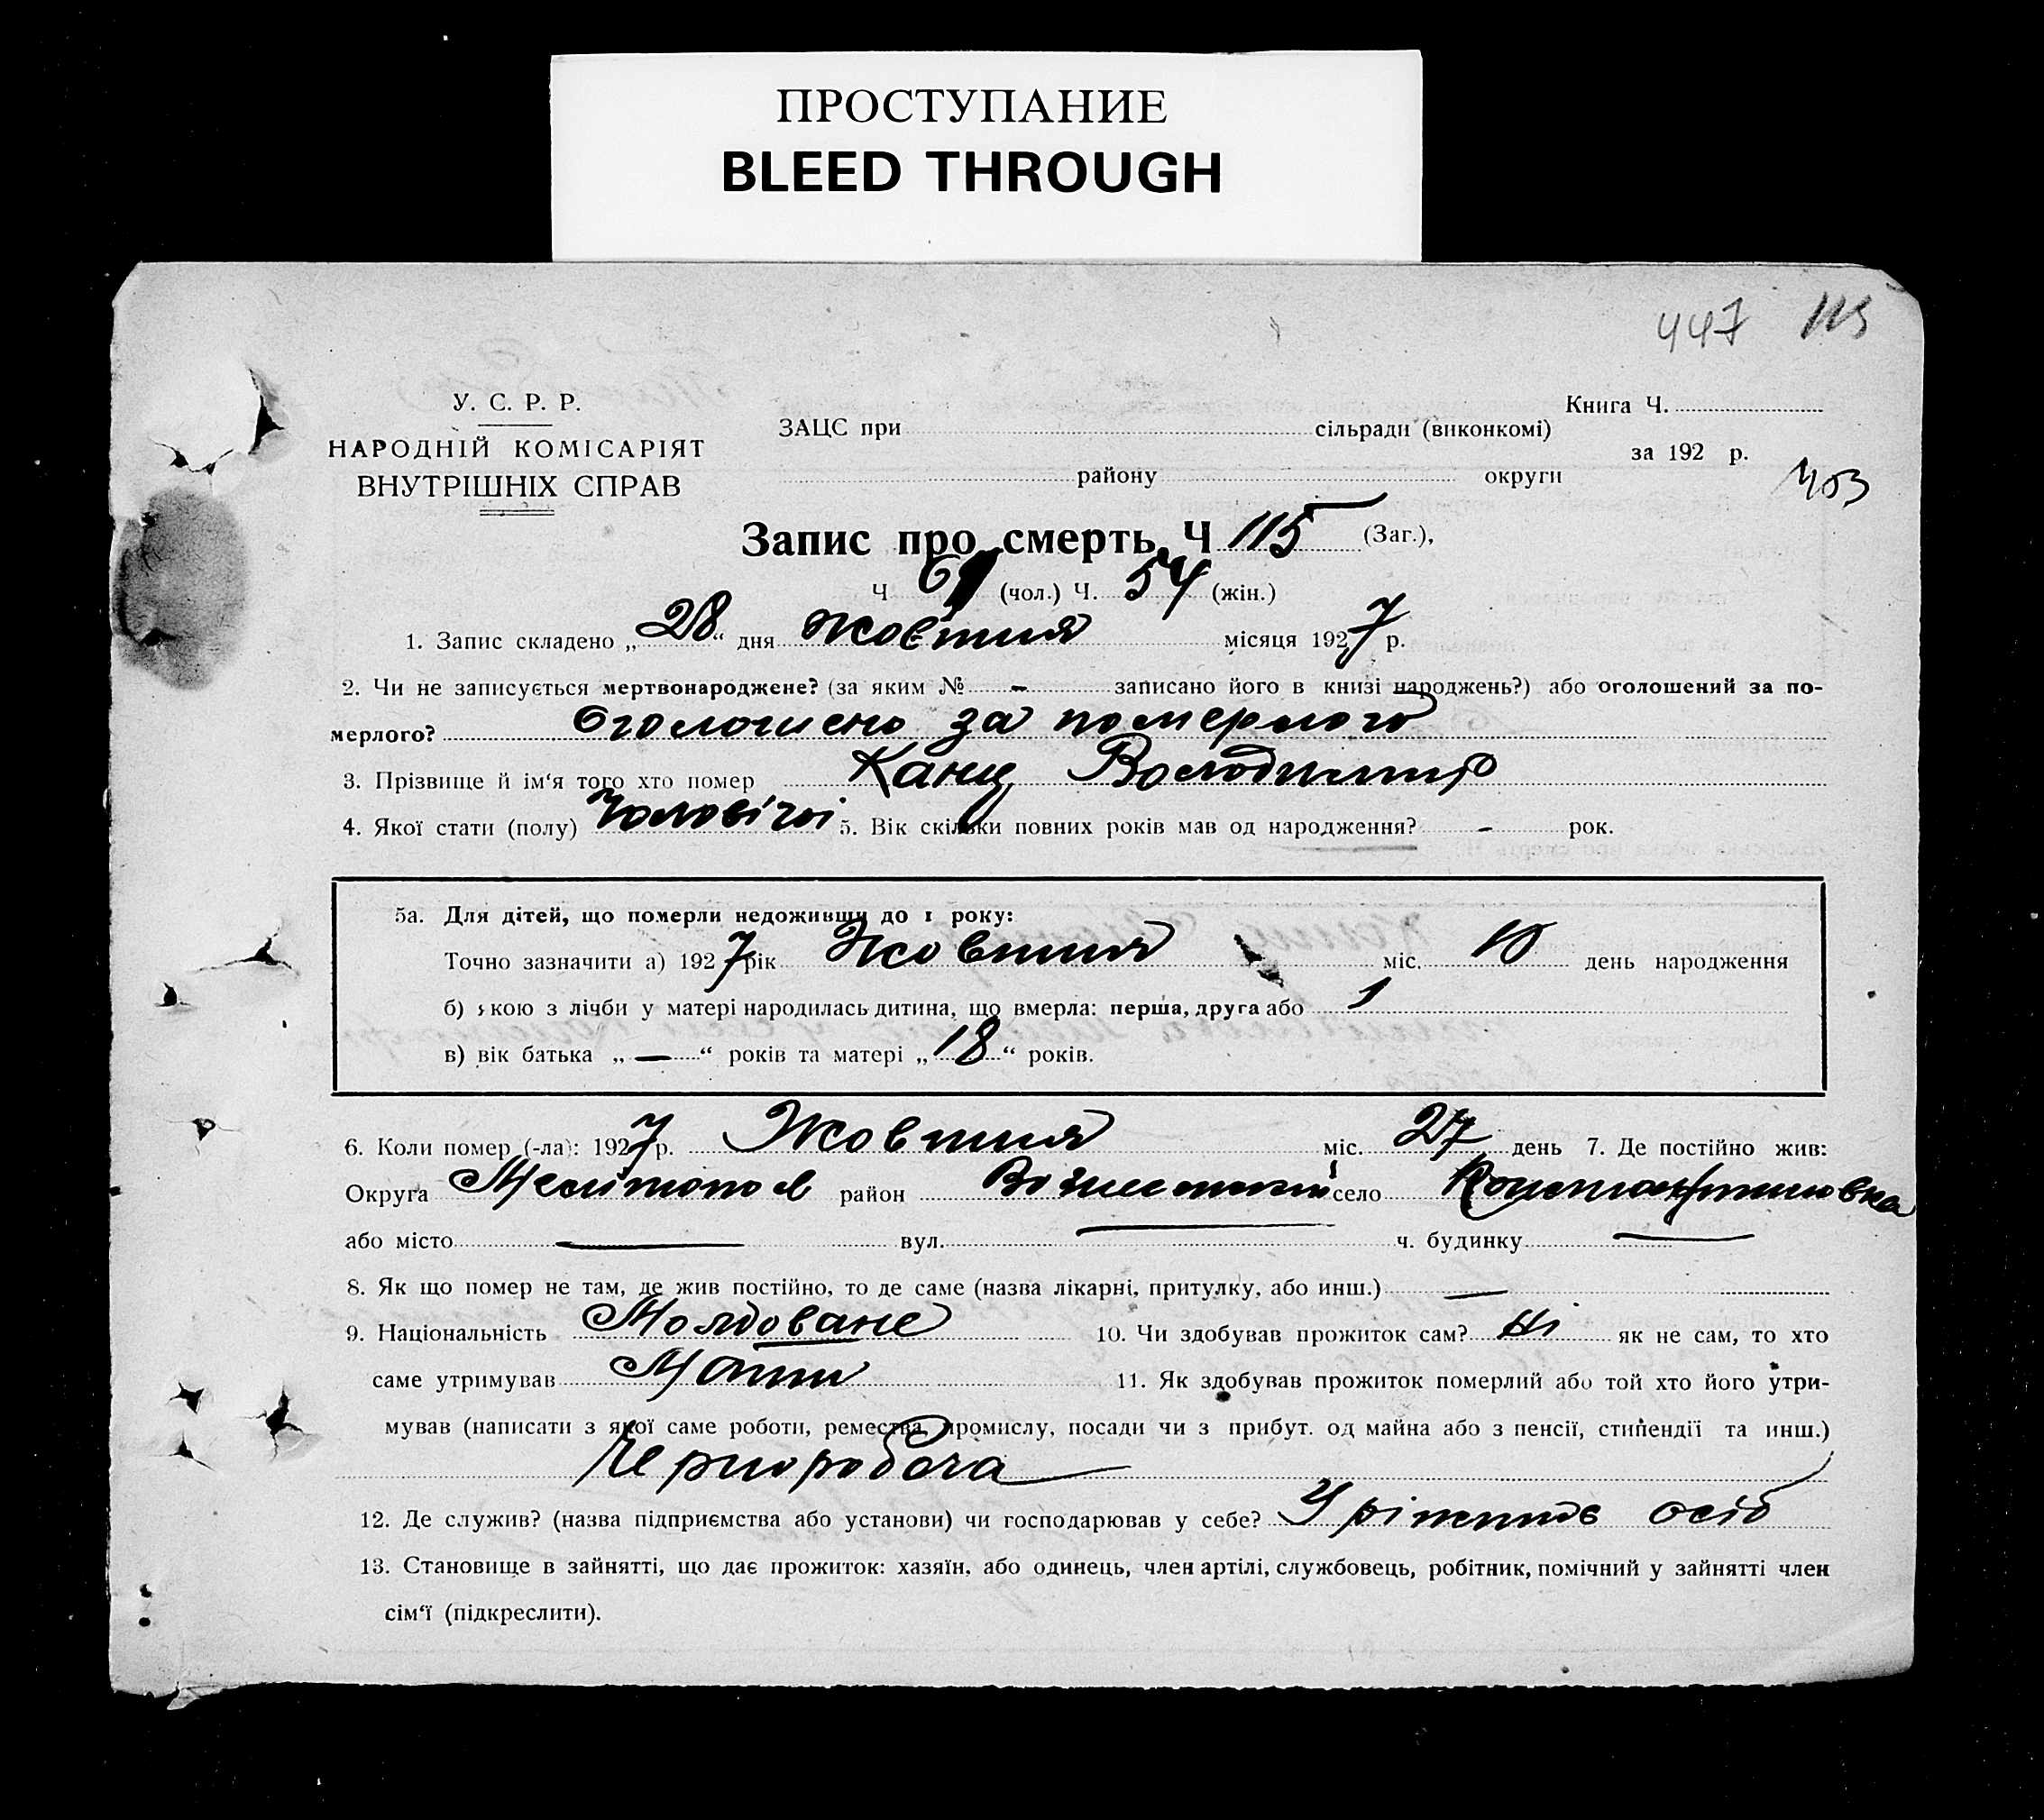 ПРОСТУПАНИЕ
BLEED THROUGH
447 115
У. С. Р. Р.
НАРОДНІЙ КОМІСАРІЯТ
ВНУТРІШНІХ СПРАВ
ЗАЦС при сільради (виконкомі)
району округи
Книга Ч.
за 192 р.
403
Запис про смерть Ч 115 (Заг.),
Ч 61 (чол.) Ч. 54 (жін.)
1. Запис складено „28“ дня жовтня місяця 1927 р.
2. Чи не записується мертвонароджене? (за яким № - записано його в книзі народжень?) або оголошений за по-
мерлого? Оголошено за померлого
3. Прізвище й ім‘я того хто помер Канц Володимир
4. Якої стати (полу) Чоловічої 5. Вік скільки повних років мав од народження? - рок.
5а. Для дітей, що померли недоживши до 1 року:
Точно зазначити а) 1927 рік Жовтня міс. 10 день народження
б) якою з лічби у матері народилась дитина, що вмерла: перша, друга або 1
в) вік батька „—“ років та матері „18“ років.
6. Коли помер (-ла): 1927 р. Жовтня міс. 27 день 7. Де постійно жив:
Округа Мелітопол район село Константиновка
або місто — вул. — ч. будинку —
8. Як що помер не там, де жив постійно, то де саме (назва лікарні, притулку, або инш.) —
9. Національність Молдоване 10. Чи здобував прожиток сам? Ні як не сам, то хто
саме утримував Мати 11. Як здобував прожиток померлий або той хто його утри-
мував (написати з якої саме роботи, ремества, промислу, посади чи з прибут. од майна або з пенсії, стипендії та инш.)
Чорноробоча
12. Де служив? (назва підприємства або установи) чи господарював у себе? У ріжних осіб
13. Становище в зайнятті, що дає прожиток: хазяїн, або одинець, член артілі, службовець, робітник, помічний у зайнятті член
сім‘ї (підкреслити).